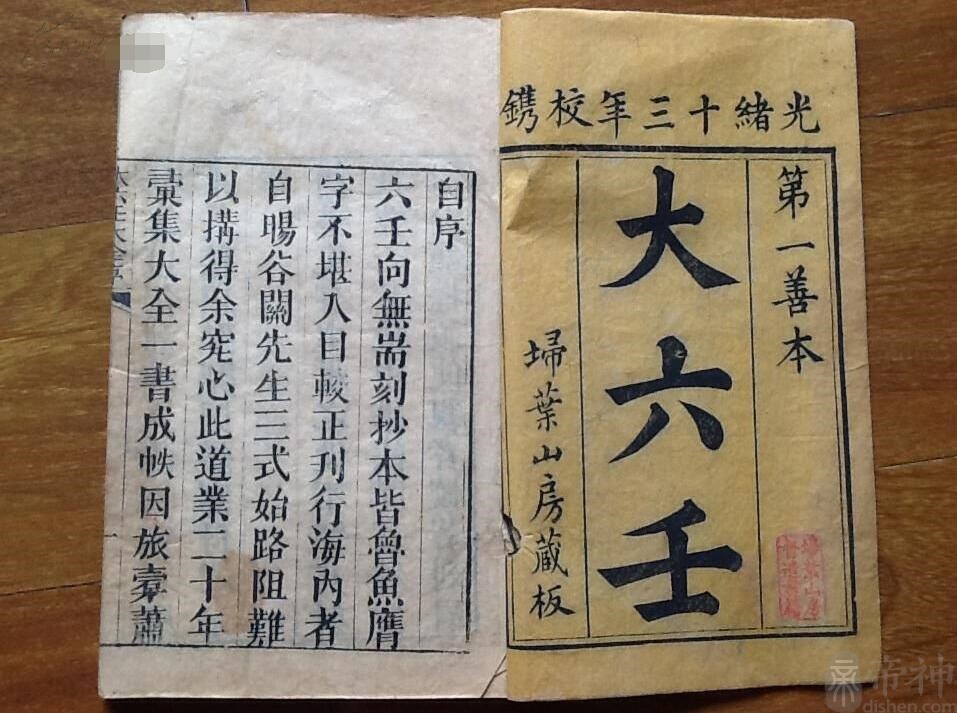 光緒十三年校鐫
第一善本
大六壬
埽葉山房藏板
自序
六壬向無耑刻抄本皆魯魚膺
字不堪入目較正刋行海內者
自暘谷關先生三式始路阻難
以搆得余究心此道業二十年
彚集大全一書成帙因旅橐蕭
帝神
dishen.com